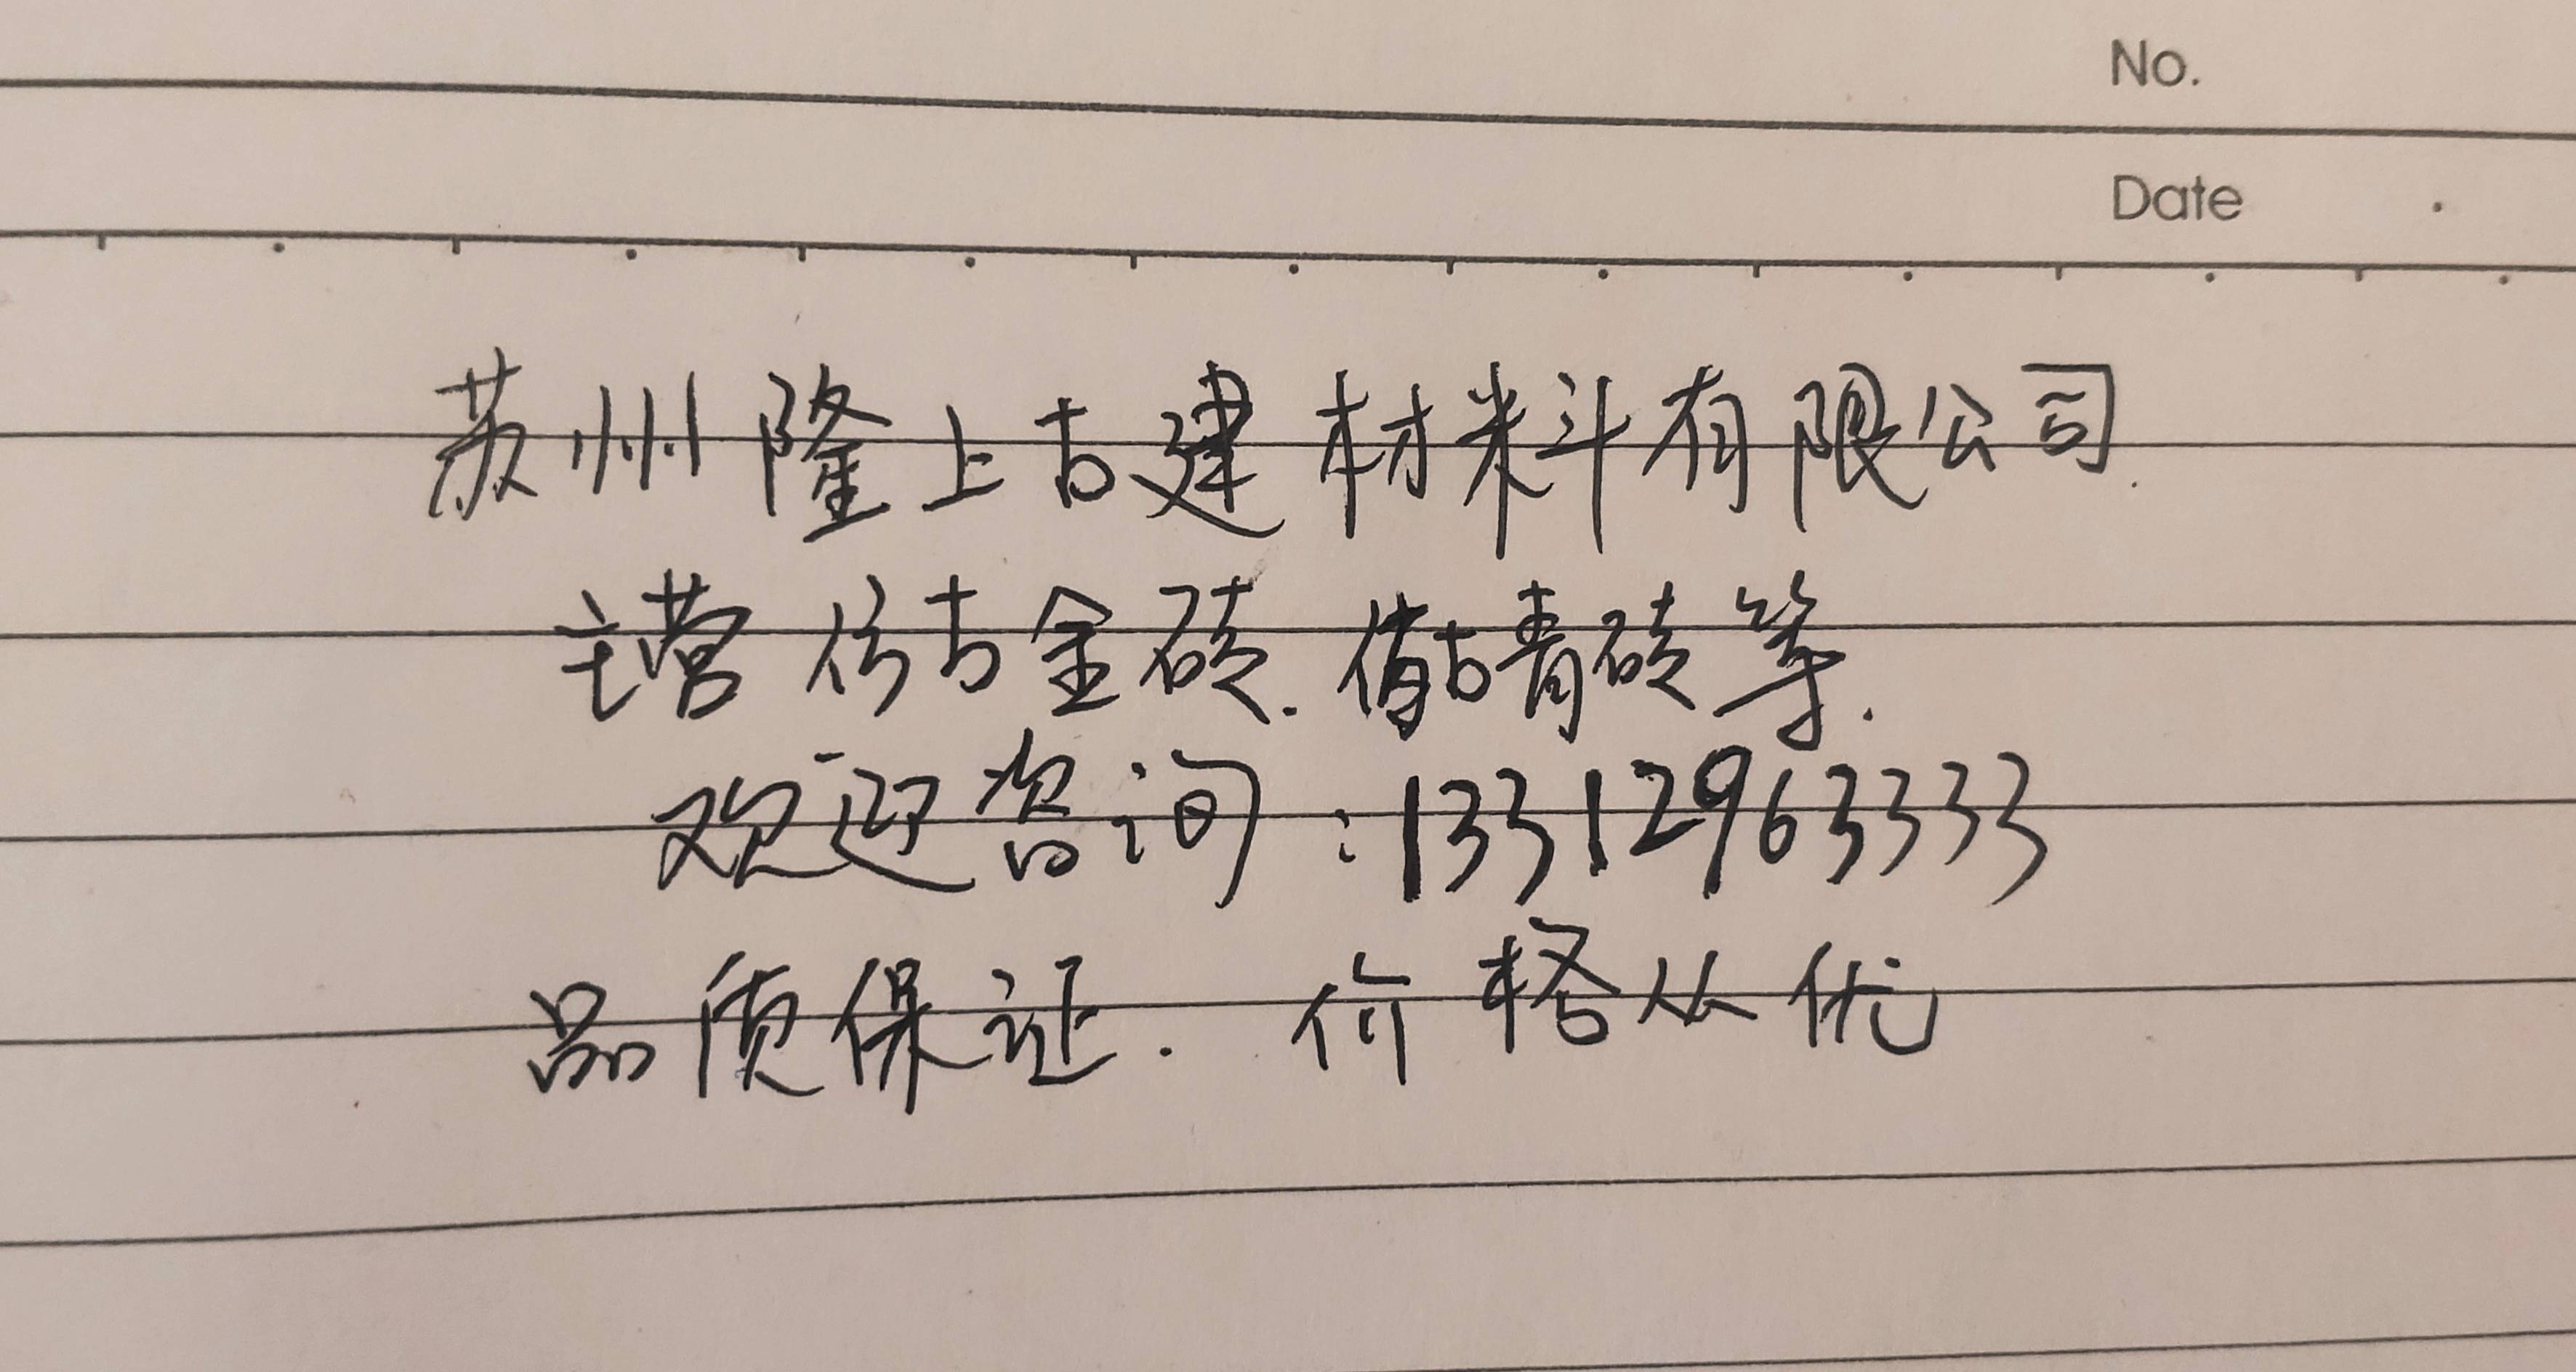 No.
Date
苏州隆上古建材料有限公司.
主营仿古金砖.仿古青砖等.
欢迎咨询:13312963333
品质保证.价格从优